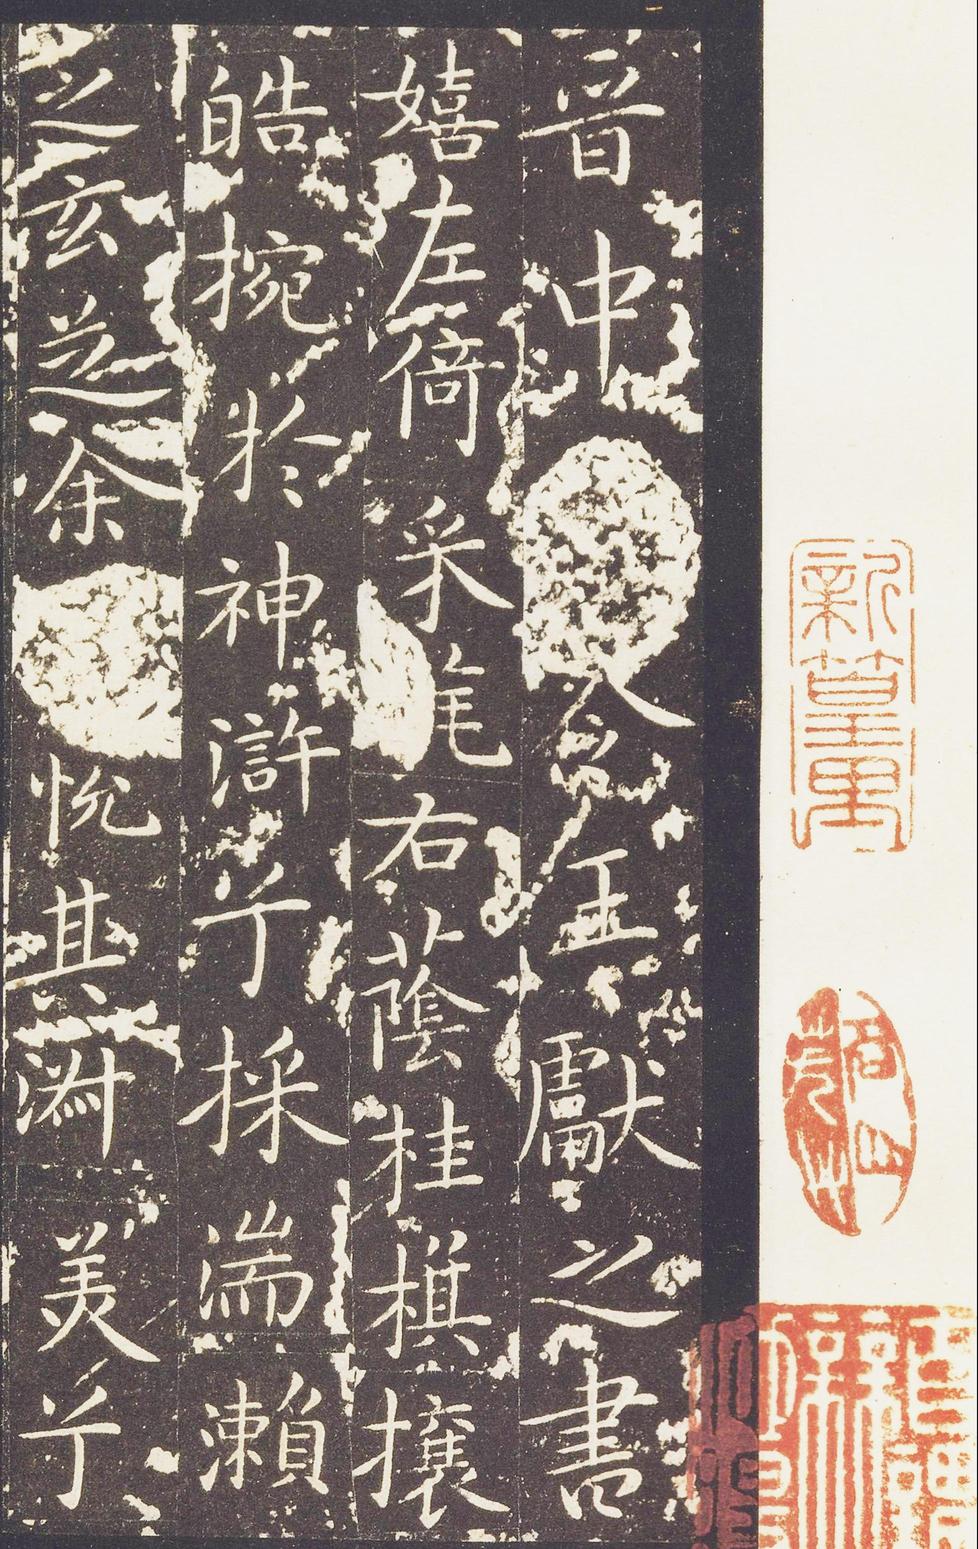 晉中令王獻之書
嬉左倚采旄右蔭桂旗攘
皓捥於神滸兮採湍瀨
之玄芝余悅其淑美兮